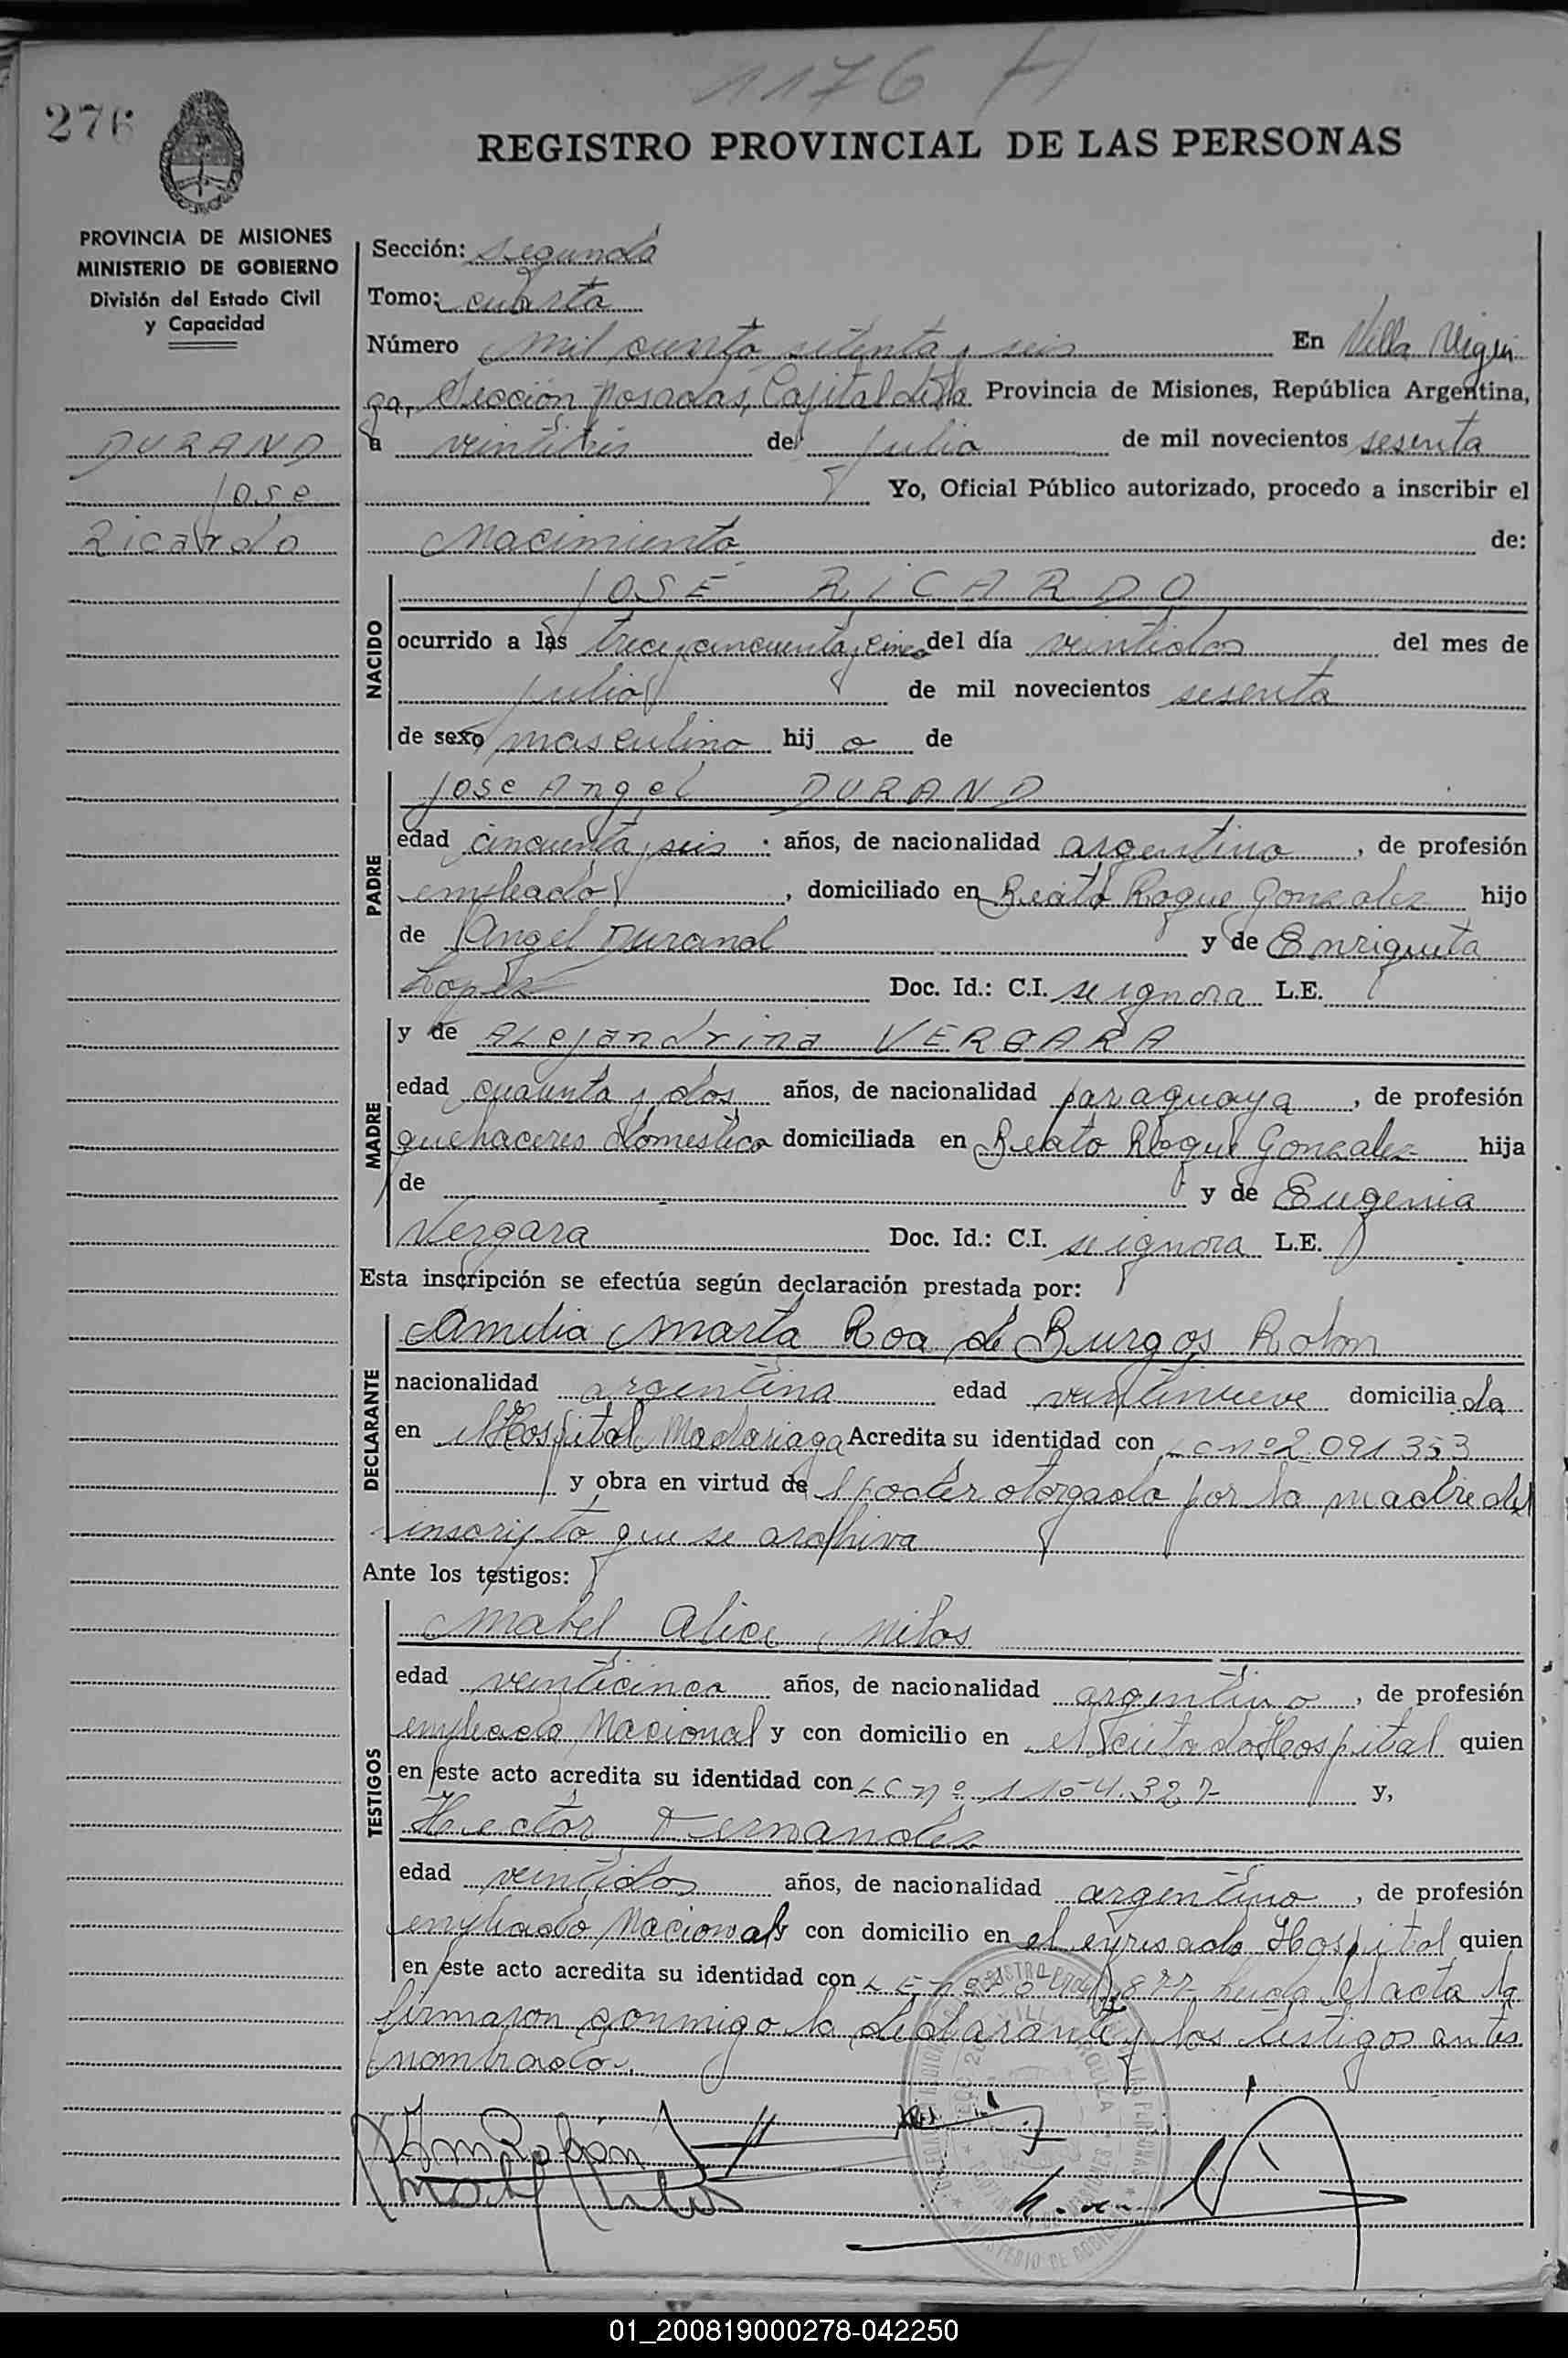 1176 H
276
REGISTRO PROVINCIAL DE LAS PERSONAS
PROVINCIA DE MISIONES
MINISTERIO DE GOBIERNO
División del Estado Civil
y Capacidad
DURAND
Jose
Ricardo
Sección: segunda
Tomo: cuarto
Número mil ciento setenta y seis En Villa Urqui
za, Sección Posadas, Capital de la Provincia de Misiones, República Argentina,
a veintitrés de julio de mil novecientos sesenta
Yo, Oficial Público autorizado, procedo a inscribir el
Nacimiento de:
NACIDO
JOSÉ RICARDO
ocurrido a las trece y cincuenta y cinco del día veintidos del mes de
julio de mil novecientos sesenta
de sexo masculino hij o de
PADRE
Jose Angel DURAND
edad cincuenta y seis años, de nacionalidad argentino, de profesión
empleado, domiciliado en Beato Roque Gonzalez hijo
de Angel Durand y de Enriqueta
Lopez Doc. Id.: C.I. se ignora L.E.
MADRE
y de Alejandrina VERGARA
edad cuarenta y dos años, de nacionalidad paraguaya, de profesión
quehaceres domestico domiciliada en Beato Roque Gonzalez hija
de y de Eugenia
Vergara Doc. Id.: C.I. se ignora L.E.
Esta inscripción se efectúa según declaración prestada por:
DECLARANTE
Amelia Marta Roa de Burgos Rolon
nacionalidad argentina edad veintinueve domicilia da
en el Hospital Madariaga Acredita su identidad con LC nº 2.091.353
y obra en virtud de el poder otorgado por la madre del
inscripto que se archiva
Ante los testigos:
TESTIGOS
Mabel Alice Milos
edad veinticinco años, de nacionalidad argentina, de profesión
empleada Nacional y con domicilio en el citado Hospital quien
en este acto acredita su identidad con LC nº 1104.327 y,
Hector Fernandez
edad veintidos años, de nacionalidad argentino, de profesión
empleado Nacional y con domicilio en el expresado Hospital quien
en este acto acredita su identidad con LE nº 877 Leída el acta la
firmaron conmigo la declarante y los testigos antes
nombrados.
01_200819000278-042250